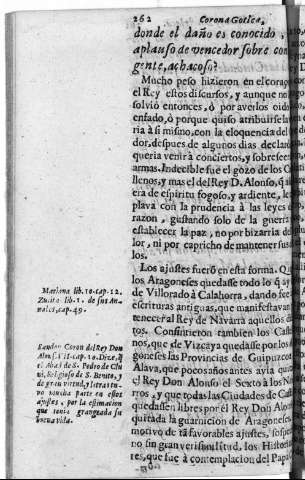 262 Corona Gotica,
donde el daño es conocido,
aplauso de vencedor sobre
gente, achacoso?
Mucho peso hizieron en el
el Rey estos discursos, y aunque no
solvió entonces, ó por averlos
enfado, ó porque quiso atribuirse la
ria à si mismo, con la eloquencia del
dor, despues de algunos dias
queria venir à conciertos, y sobreseer
armas. Indecible fue el gozo de los
llenos, y mas el del Rey D. Alonso, q̃
era de espiritu fogoso, y ardiente,
plava con la prudencia à las leyes
razon, gustando solo de la guerra
establecer la paz, no por bizarria
lor, ni por capricho de mantener sus
los.
Los ajustes fuerõ en esta forma. Q
los Aragoneses quedasse todo lo q̃
de Villorado à Calahorra, dando fee
escrituras antiguas, que manifestavan
tenecer al Rey de Navarra aquellos
tos. Consintieron tambien los
nos, que de Vizcaya quedasse por los
goneses las Provincias de
Alava, que pocos años antes avia
el Rey Don Alonso el Sexto à los
rros, y que todas las Ciudades de
quedassen libres por el Rey Don
quitada la guarnicion de
motivo de tã favorables ajustes,
no sin gran verisimilitud, los
res, que fue à contemplacion del Papa
Mariana lib. 10. cap. 12.
Zurita lib. 1. de sus An-
nales, cap. 49.
Sandov. Coron. del Rey Don
Alons. cap. 10. Dize, q̃
el Abad de S. Pedro de
ni, Religioso de S. Benito, y
de gran virtud, y letras tu-
vo mucha parte en estos
ajustes, por la estimacion
que tenia grangeada su
vida.